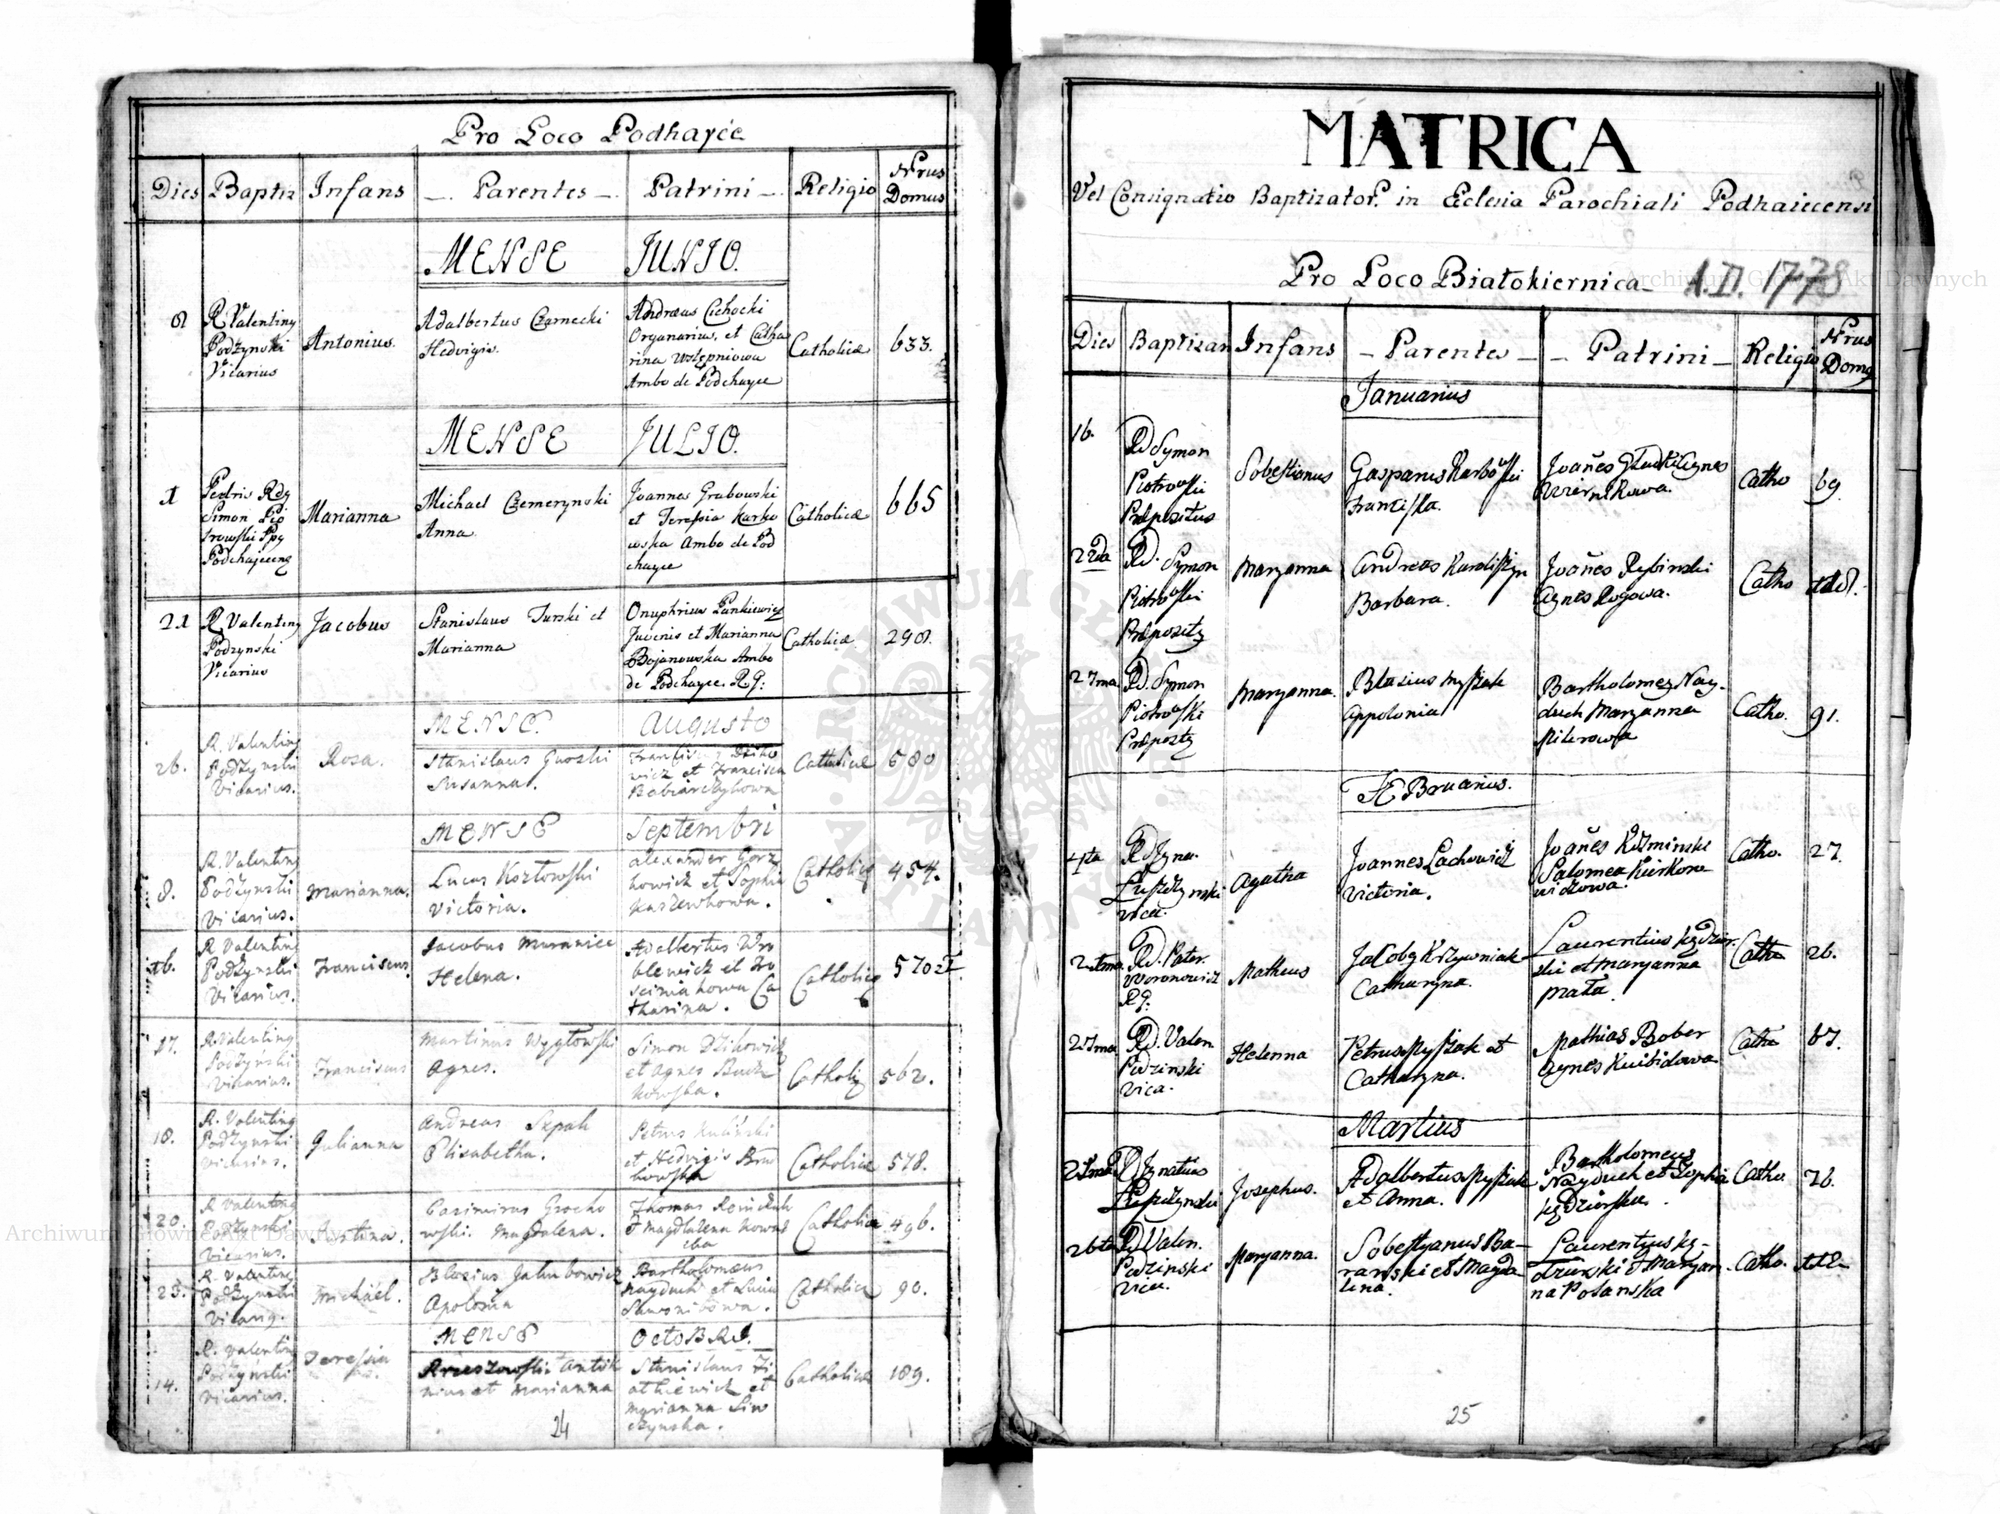 Pro Loco Podhayce
Dies Baptiz Infans Parentes Patrini Religio Nrus Domus
MENSE JUNIO.
R Valentiny
Podzynski
Vicarius
Antonius.
Adalbertus Czarnecki
Hedvigis.
Andreas Cichocki
Organarius, et Catha
rina Wstępniowa
Ambo de Podchayce
Catholicæ
633.
MENSE JULIO.
1
Simon Pio
trowski Ppg
Marianna
Michael Czemerynski
Anna
Joannes Grabowski
et Teressia Karko
wska Ambo de Pod
chayce
Catholicæ
665
21
R Valentiny
Podzynski
Vicarius
Jacobus
Stanislaus Turski et
Marianna
Onuphrius Pankiewicz
Juvenis et Marianna
Bojanowska Ambo
de Podchayce. R.g:
Catholicæ
290.
MENSE. Augusto
26.
R. Valentiny
Podzynski
Vicarius.
Rosa.
Stanislaus Guoski
Susanna.
et Francisca
Catholicæ
580
MENSE Septembri
8.
R. Valentiny
Podzynski
Vicarius.
Marianna.
Lucas Kozłowski
Victoria.
Alexander Gorz
kowicz et Sophia
Kaszewkowa.
Catholicę
454.
16.
R Valentiny
Podzynski
Vicarius.
Franciscus
Jacobus Muranice
Helena.
Adelbertus Wro
blewicz et Tro
scinia kowa Ca
tharina.
Catholicę
570
17.
R. Valentiny
Podzynski
Vicarius.
Franciscus
Martinus Wygłowski
Agnes.
Simon Dzikowicz
et Agnes Bucz
kowska.
Catholicę
562.
18.
R. Valentiny
Podzynski
Vicarius.
Julianna
Andreas Szpak
Elisabetha.
Petrus Kuliński
et Hedvigis Bru
kowska
Catholicæ
578.
20.
R Valentiny
Podzynski
Vicarius.
Justina.
Casimirus Grocho
wski. Magdalena.
Thomas
et Magdalena Kowal
ska
Catholicæ
496.
23.
R. Valentiny
Podzynski
Vicariu.
Michael.
Blasius Jakubowicz
Apolonia
Bartholomæus
Nayduch et Lucia
Catholicæ
90.
MENSE OctoBRI.
14.
R. Valentiny
Podzynski
Vicarius.
Teressia
Anto
nius et Marianna
Stanislaus Fi
atkiewicz et
Marianna Siw
czynska.
Catholicæ
189.
24
MATRICA
Vel Consignatio Baptizator. in Eclesia Parochiali Podhaiecensi
Pro Loco Białokiernica A.D. 1778
Dies Baptizan Infans Parentes Patrini Religio Nrus Domg
Januarius
16.
Rd Symon
Piotrowski
Præpositus
Sobestianus
Gasparus Karbowski
Franciska.
Joañes Gladki Agnes
Wiernikowa.
Catho
69.
22da
Rd. Symon
Piotrowski
Præpozitg
Maryanna
Andreas
Barbara.
Joañes Rybinski
Agnes Rogowa.
Catho
118.
27ma
Rd. Symon
Piotrowski
Præpoztg
Maryanna.
Blasius Myssak
Appolonia
Bartholomeg Nay-
duch Maryanna
Mikrowska
Catho.
91.
FEBruarius.
4ta
Rd Jgna.
Luszczynski
vice.
Agatha
Joannes Lachowicz
Victoria.
Joañes Koźminski
Salomea Kurkow
widzowa.
Catho.
27.
21ma
Rd. Pater
Woronowicz
R.g:
Matheus
Jacobg Krzywniak
Catharyna.
Laurentius Kędzier-
ski et Maryanna
Prała.
Catho
26.
27ma
Rd. Valen
Podzinski
vica.
Helenna
Petrus Myssak et
Catharyna.
Mathias Bober
Agnes Kuibidowa
Catho
67.
Martius
21ma
Rd Jgnatius
Luszczynski
Josephus.
Adalbertus Myssak
et Anna.
Bartholomeus
Nayduch et Zophia
Kędzierska.
Catho.
76.
26ta
Rd Valen.
Podzinski
vice.
Maryanna.
Sobestyanus Ba-
ranski et Magda-
lena.
Laurentyus Kę-
dzurski et Maryan-
na Polanska
Catho.
112
25
ARCHIWUM GŁÓWNE AKT DAWNYCH
Archiwum Główne Akt Dawnych
Archiwum Główne Akt Dawnych